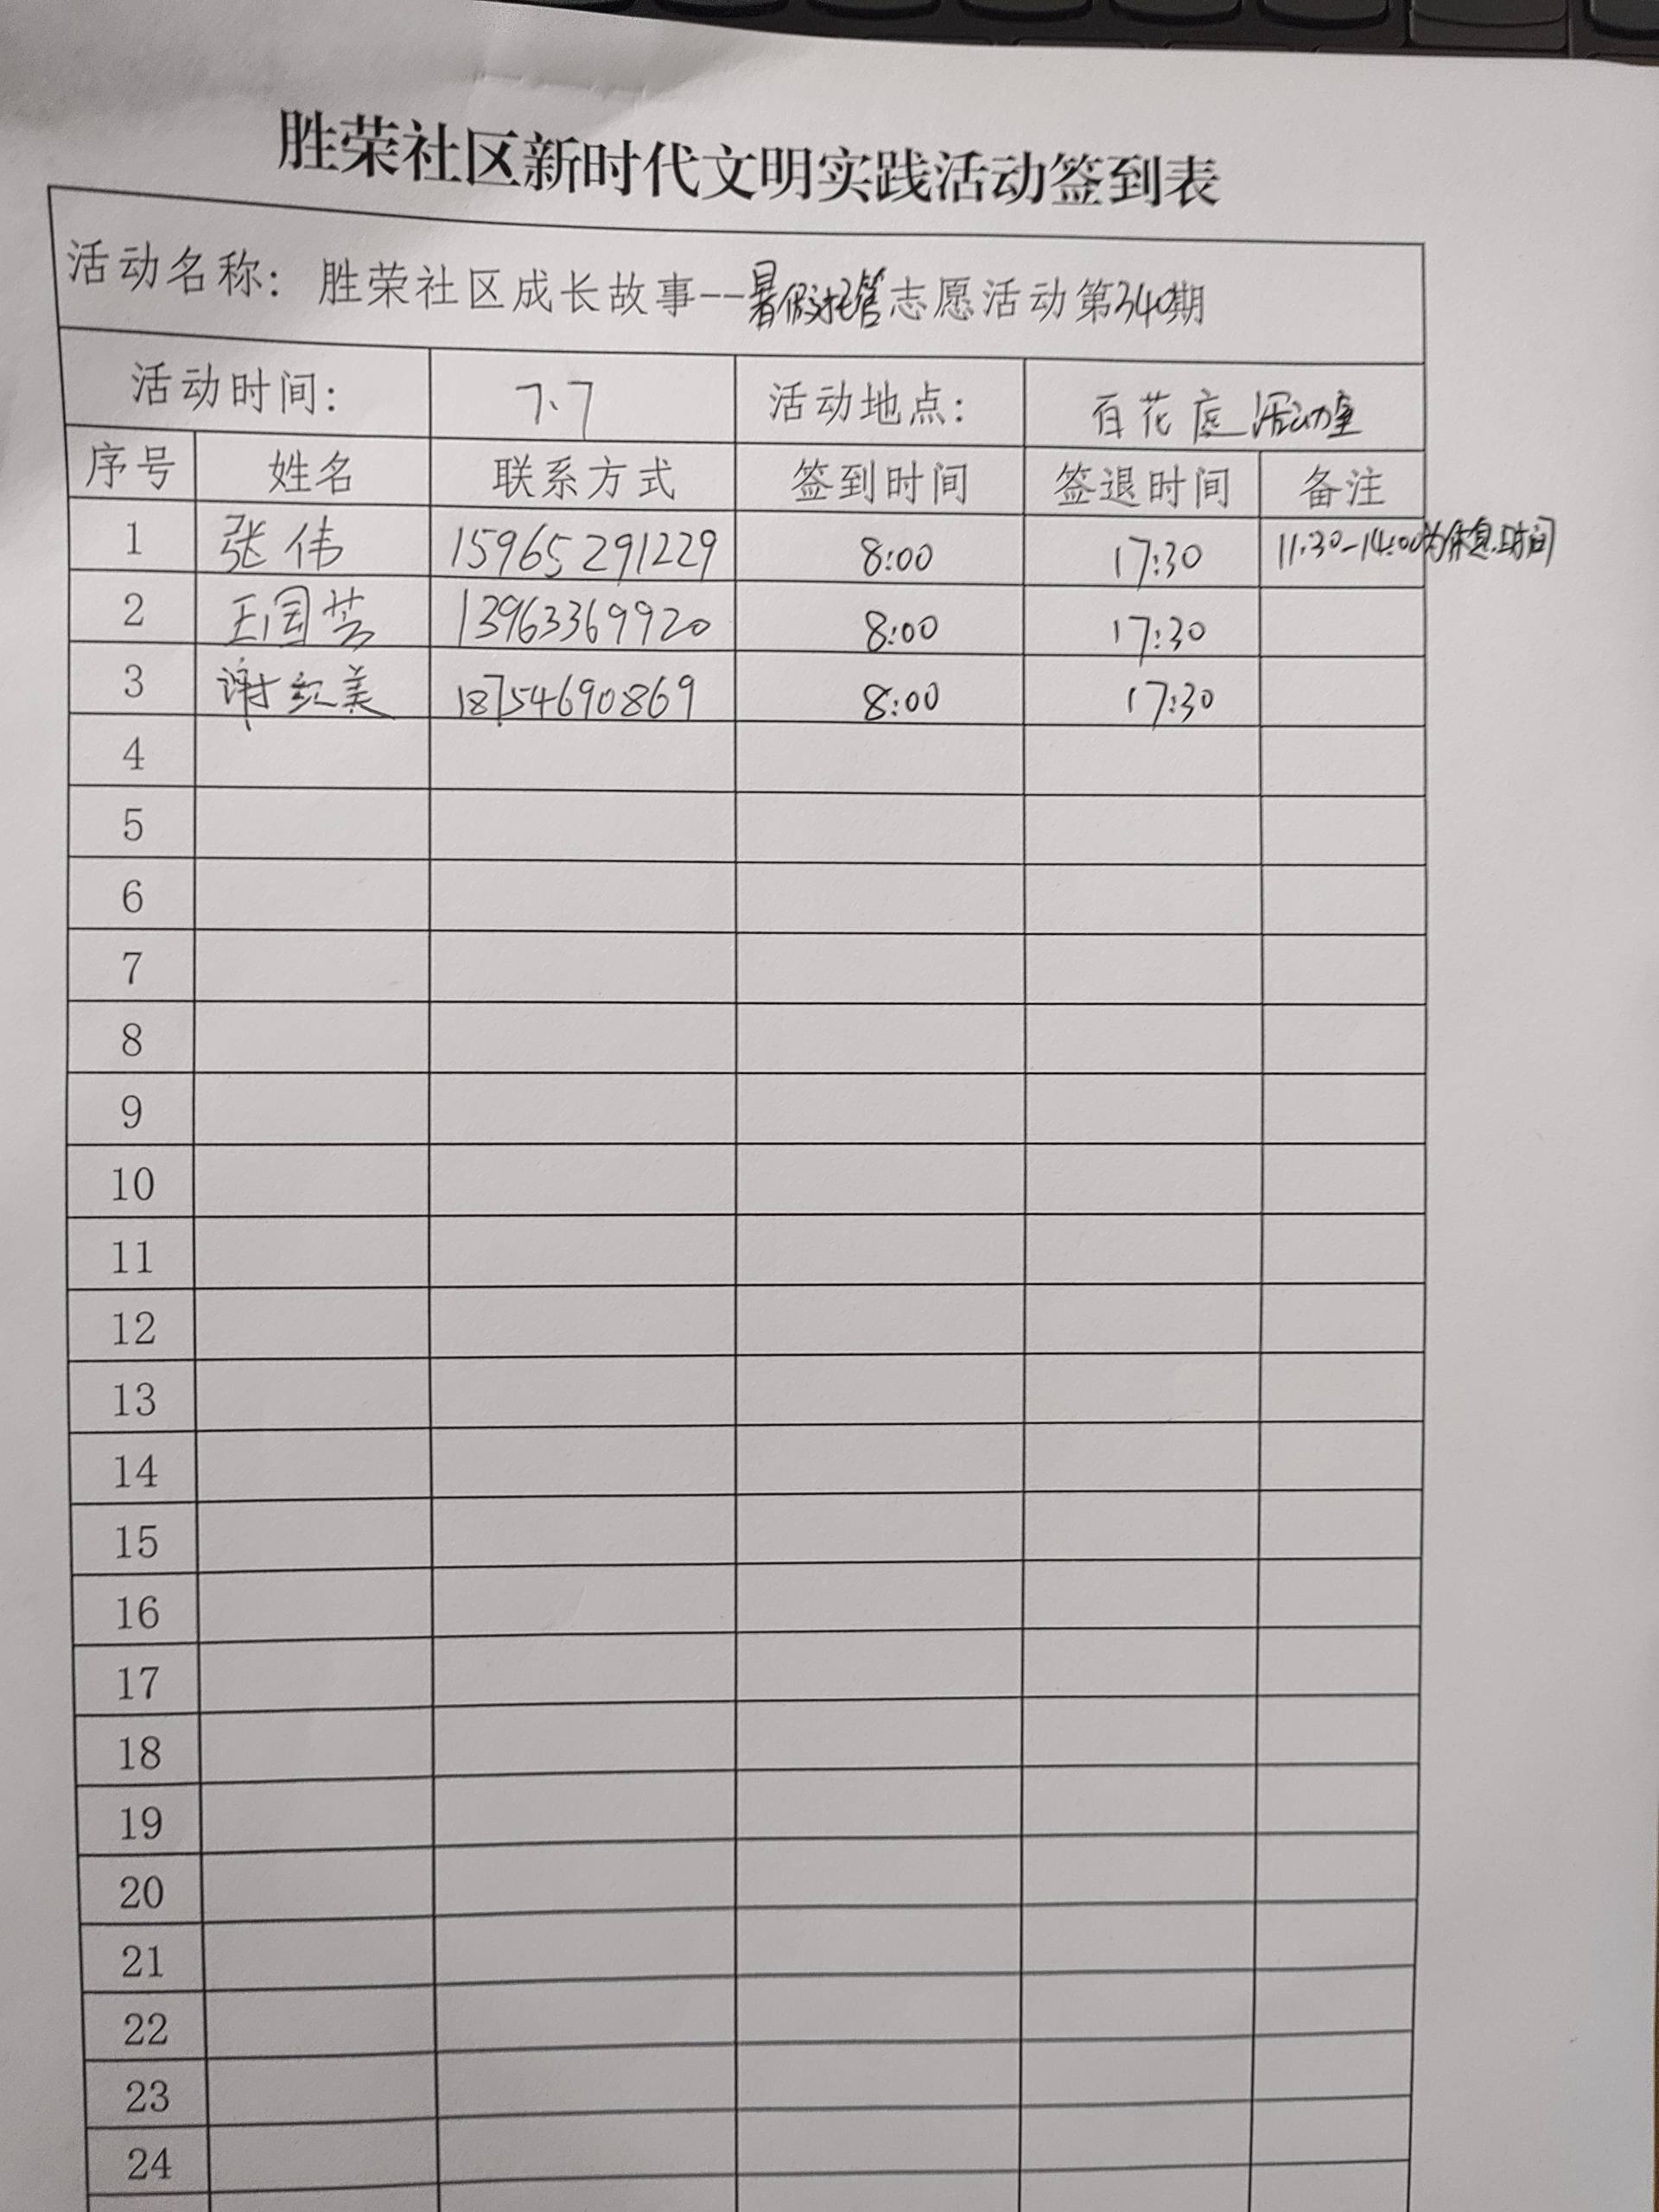 胜荣社区新时代文明实践活动签到表
活动名称：胜荣社区成长故事--暑假托管志愿活动第340期
活动时间： 7.7 活动地点： 百花庭活动室
序号 姓名 联系方式 签到时间 签退时间 备注
1 张伟 15965291229 8:00 17:30 11:30-14:00为休息时间
2 王国芸 13963369920 8:00 17:30
3 谢红美 18754690869 8:00 17:30
4
5
6
7
8
9
10
11
12
13
14
15
16
17
18
19
20
21
22
23
24